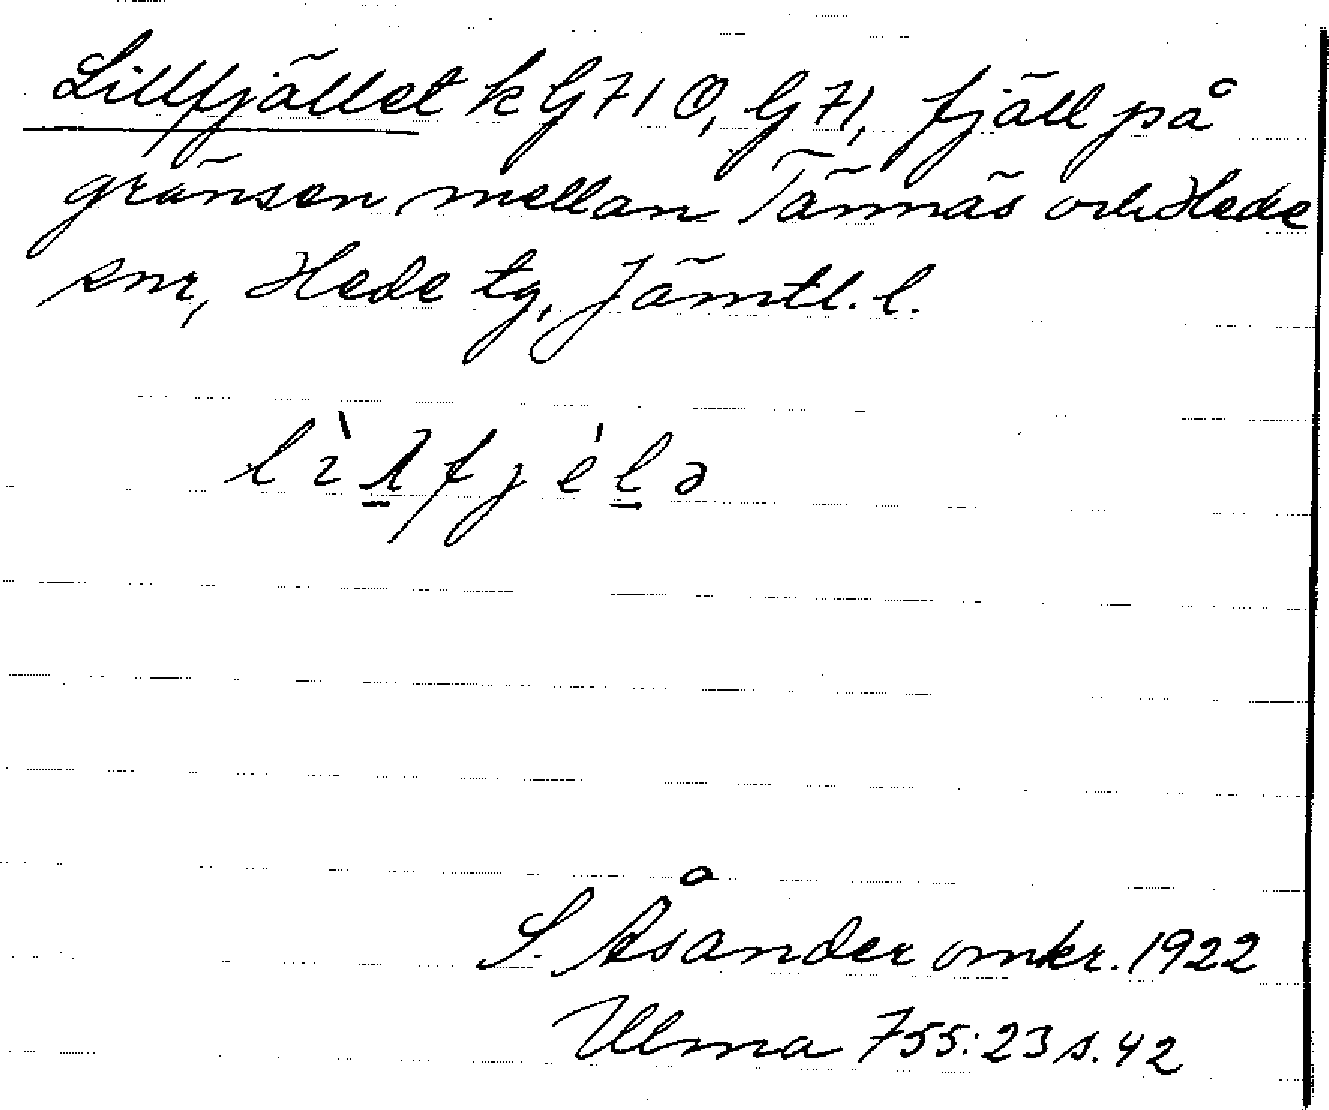 Lillfjället k G 71 O, G 71, fjäll på
gränsen mellan Tännäs och Hede
snr, Hede tg, Jämtl. l.
S. Åsander omkr. 1922
Ulma 755:23 s. 42